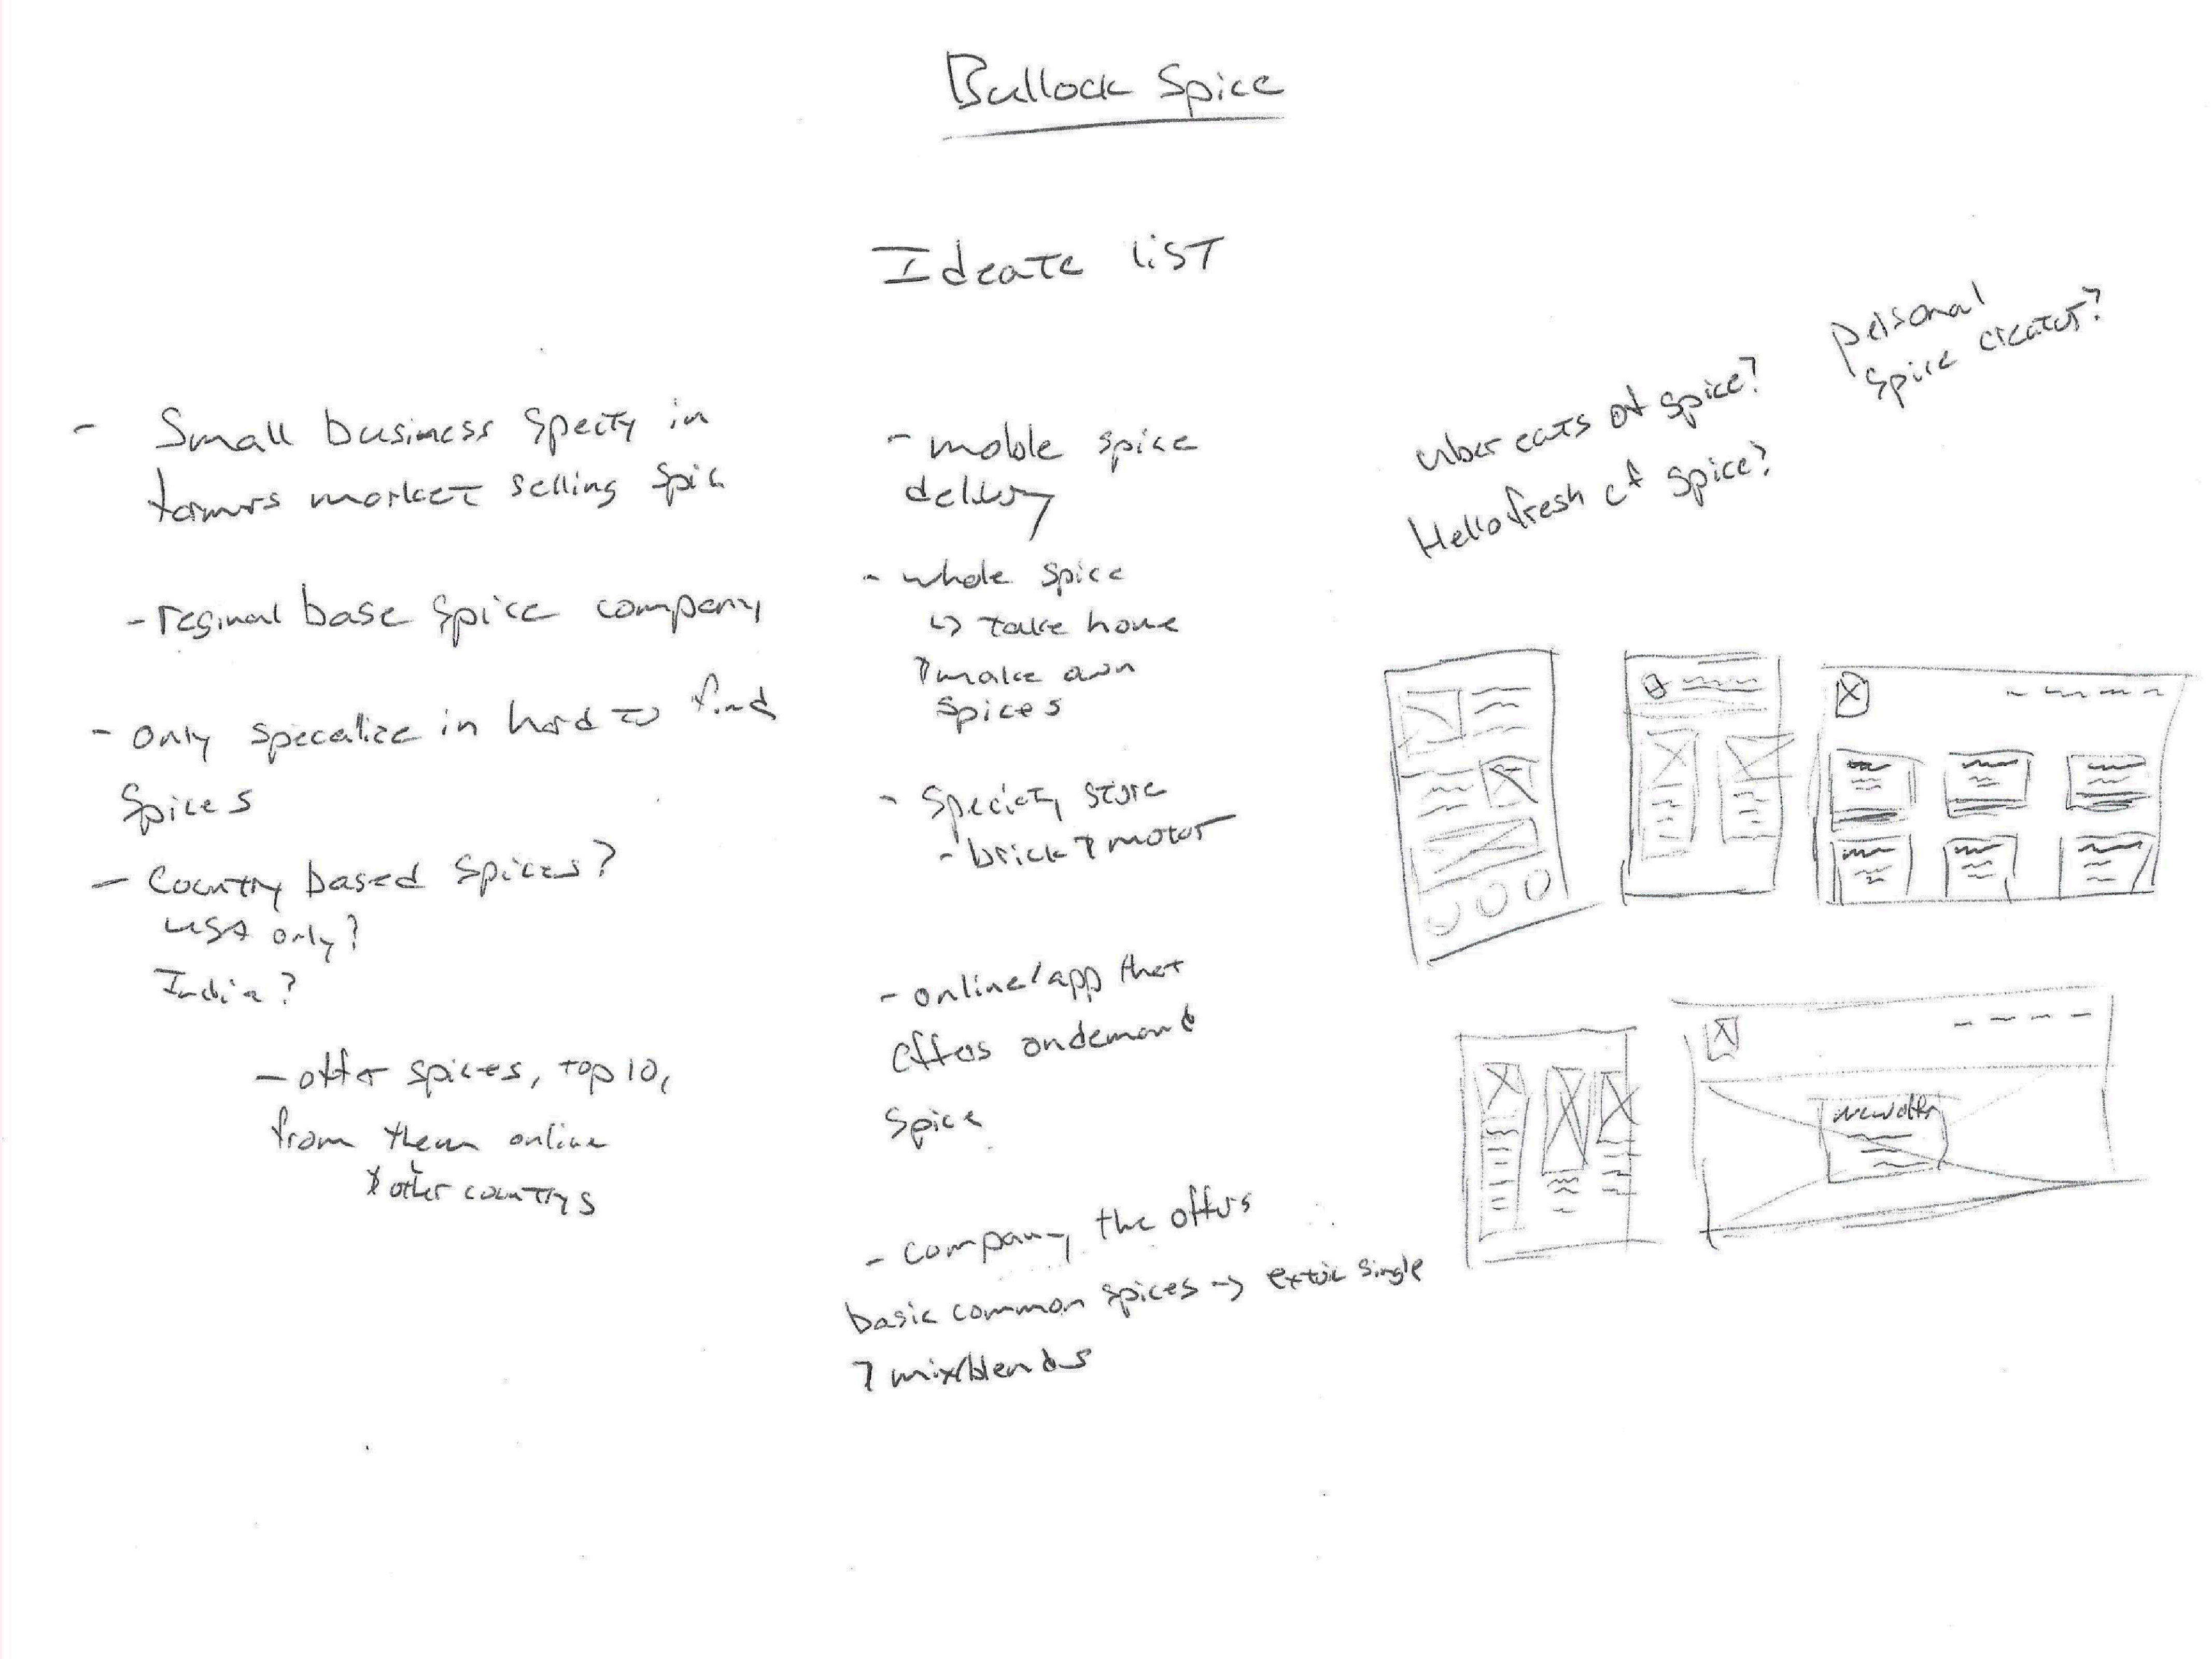 Bullock Spice
Ideate list
- Small business specity in
farmers market selling spic
- reginal base spice company
- only specalize in hard to find
Spices
- Country based spices?
USA only?
India?
- offer spices, top 10,
from them online
& other countrys
- moble spice
delivery
- whole spice
↳ take home
& make own
spices
- Speciety store
- brick & motor
- online/app that
offers ondemand
spice
- company the offers
basic common spices → extoic single
& mix/blends
uber eats of spice?
Hellofresh of spice?
personal
spice creator?
new offer